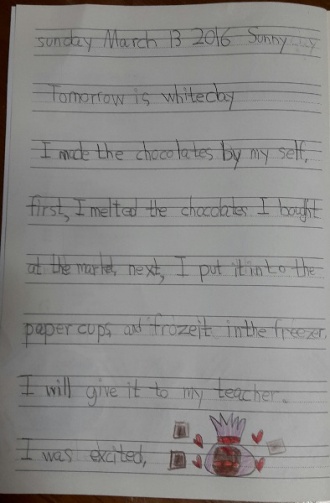 sunday March 13 2016 Sunny
Tomorrow is whiteday
I made the chocolates by my self.
first, I melted the chocolates I bought
at the market, next, I put it into the
paper cups and froze it in the freezer.
I will give it to my teacher.
I was excited,